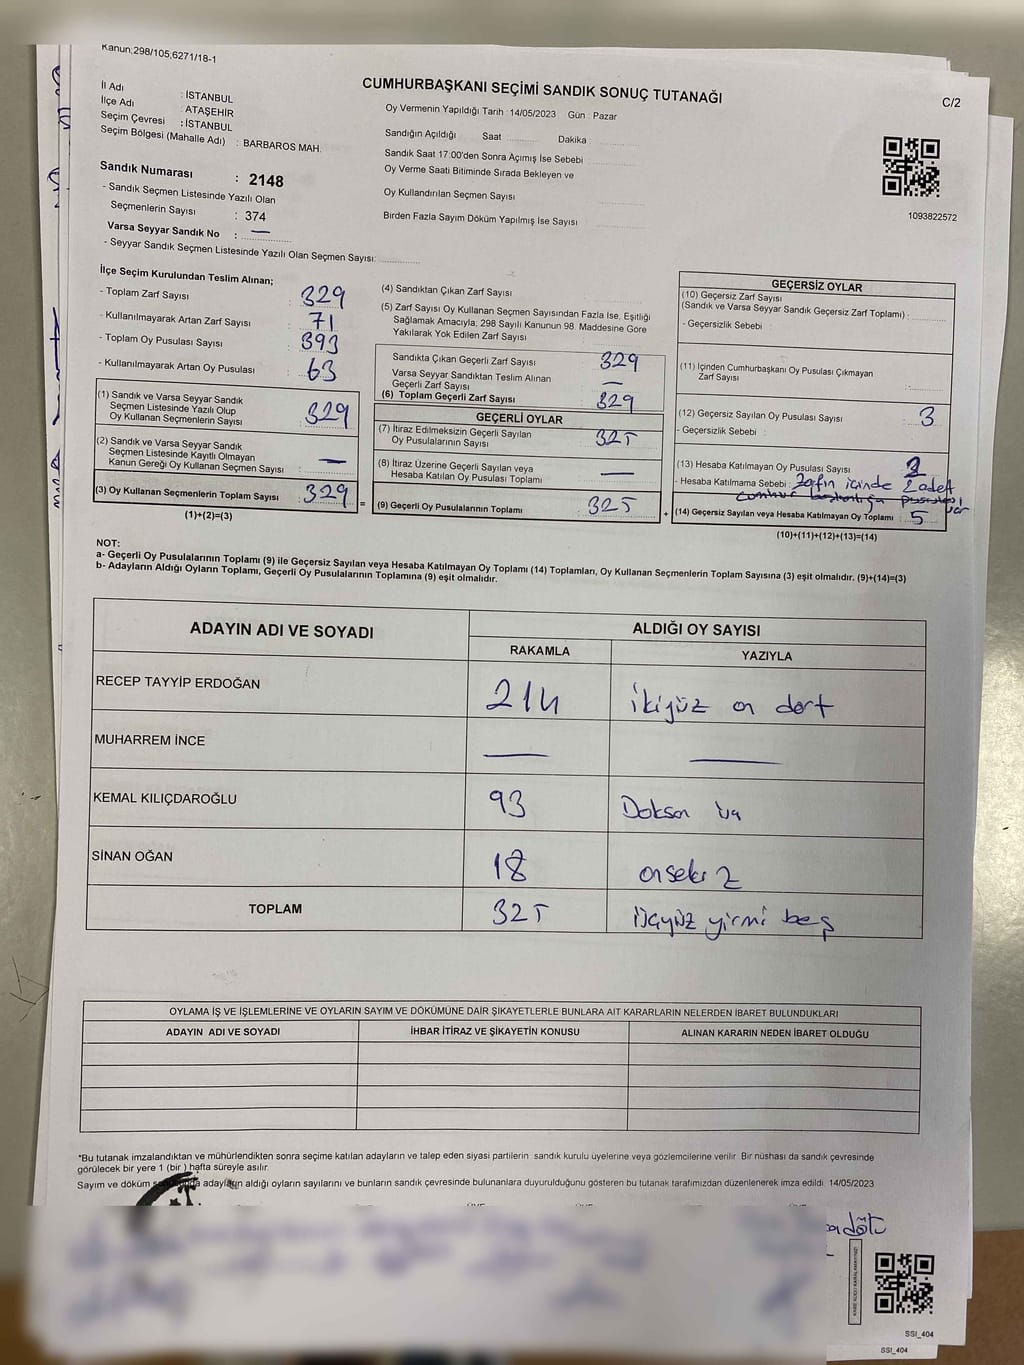 Kanun;298/105;6271/18-1
CUMHURBAŞKANI SEÇİMİ SANDIK SONUÇ TUTANAĞI
C/2
İl Adı : İSTANBUL
İlçe Adı : ATAŞEHİR
Seçim Çevresi : İSTANBUL
Seçim Bölgesi (Mahalle Adı) : BARBAROS MAH.
Oy Vermenin Yapıldığı Tarih : 14/05/2023 Gün : Pazar
Sandığın Açıldığı Saat Dakika
Sandık Saat 17:00'den Sonra Açımış İse Sebebi
Oy Verme Saati Bitiminde Sırada Bekleyen ve
Oy Kullandırılan Seçmen Sayısı
Birden Fazla Sayım Döküm Yapılmış İse Sayısı
1093822572
Sandık Numarası : 2148
- Sandık Seçmen Listesinde Yazılı Olan
Seçmenlerin Sayısı : 374
Varsa Seyyar Sandık No : —
- Seyyar Sandık Seçmen Listesinde Yazılı Olan Seçmen Sayısı:
İlçe Seçim Kurulundan Teslim Alınan;
- Toplam Zarf Sayısı : 329
- Kullanılmayarak Artan Zarf Sayısı : 71
- Toplam Oy Pusulası Sayısı : 393
- Kullanılmayarak Artan Oy Pusulası : 63
(1) Sandık ve Varsa Seyyar Sandık
Seçmen Listesinde Yazılı Olup
Oy Kullanan Seçmenlerin Sayısı : 329
(2) Sandık ve Varsa Seyyar Sandık
Seçmen Listesinde Kayıtlı Olmayan
Kanun Gereği Oy Kullanan Seçmen Sayısı : —
(3) Oy Kullanan Seçmenlerin Toplam Sayısı : 329
(1)+(2)=(3)
(4) Sandıktan Çıkan Zarf Sayısı
(5) Zarf Sayısı Oy Kullanan Seçmen Sayısından Fazla İse, Eşitliği
Sağlamak Amacıyla; 298 Sayılı Kanunun 98. Maddesine Göre
Yakılarak Yok Edilen Zarf Sayısı
Sandıkta Çıkan Geçerli Zarf Sayısı 329
Varsa Seyyar Sandıktan Teslim Alınan
Geçerli Zarf Sayısı —
(6) Toplam Geçerli Zarf Sayısı 329
GEÇERLİ OYLAR
(7) İtiraz Edilmeksizin Geçerli Sayılan
Oy Pusulalarının Sayısı 325
(8) İtiraz Üzerine Geçerli Sayılan veya
Hesaba Katılan Oy Pusulası Toplamı —
= (9) Geçerli Oy Pusulalarının Toplamı 325 +
GEÇERSİZ OYLAR
(10) Geçersiz Zarf Sayısı
(Sandık ve Varsa Seyyar Sandık Geçersiz Zarf Toplamı) :
- Geçersizlik Sebebi :
(11) İçinden Cumhurbaşkanı Oy Pusulası Çıkmayan
Zarf Sayısı :
(12) Geçersiz Sayılan Oy Pusulası Sayısı 3
- Geçersizlik Sebebi :
(13) Hesaba Katılmayan Oy Pusulası Sayısı 2
- Hesaba Katılmama Sebebi : Zarfın içinde 2 adet
cumhur başkanlığı pusulası
var
(14) Geçersiz Sayılan veya Hesaba Katılmayan Oy Toplamı : 5
(10)+(11)+(12)+(13)=(14)
NOT:
a- Geçerli Oy Pusulalarının Toplamı (9) ile Geçersiz Sayılan veya Hesaba Katılmayan Oy Toplamı (14) Toplamları, Oy Kullanan Seçmenlerin Toplam Sayısına (3) eşit olmalıdır. (9)+(14)=(3)
b- Adayların Aldığı Oyların Toplamı, Geçerli Oy Pusulalarının Toplamına (9) eşit olmalıdır.
ADAYIN ADI VE SOYADI ALDIĞI OY SAYISI
RAKAMLA YAZIYLA
RECEP TAYYİP ERDOĞAN 214 ikiyüz on dört
MUHARREM İNCE — —
KEMAL KILIÇDAROĞLU 93 Doksan üç
SİNAN OĞAN 18 onsekiz
TOPLAM 325 üçyüz yirmi beş
OYLAMA İŞ VE İŞLEMLERİNE VE OYLARIN SAYIM VE DÖKÜMÜNE DAİR ŞİKAYETLERLE BUNLARA AİT KARARLARIN NELERDEN İBARET BULUNDUKLARI
ADAYIN ADI VE SOYADI İHBAR İTİRAZ VE ŞİKAYETİN KONUSU ALINAN KARARIN NEDEN İBARET OLDUĞU
*Bu tutanak imzalandıktan ve mühürlendikten sonra seçime katılan adayların ve talep eden siyasi partilerin sandık kurulu üyelerine veya gözlemcilerine verilir. Bir nüshası da sandık çevresinde
görülecek bir yere 1 (bir ) hafta süreyle asılır.
Sayım ve döküm adayların aldığı oyların sayılarını ve bunların sandık çevresinde bulunanlara duyurulduğunu gösteren bu tutanak tarafımızdan düzenlenerek imza edildi. 14/05/2023
SSI_404
SSI_404